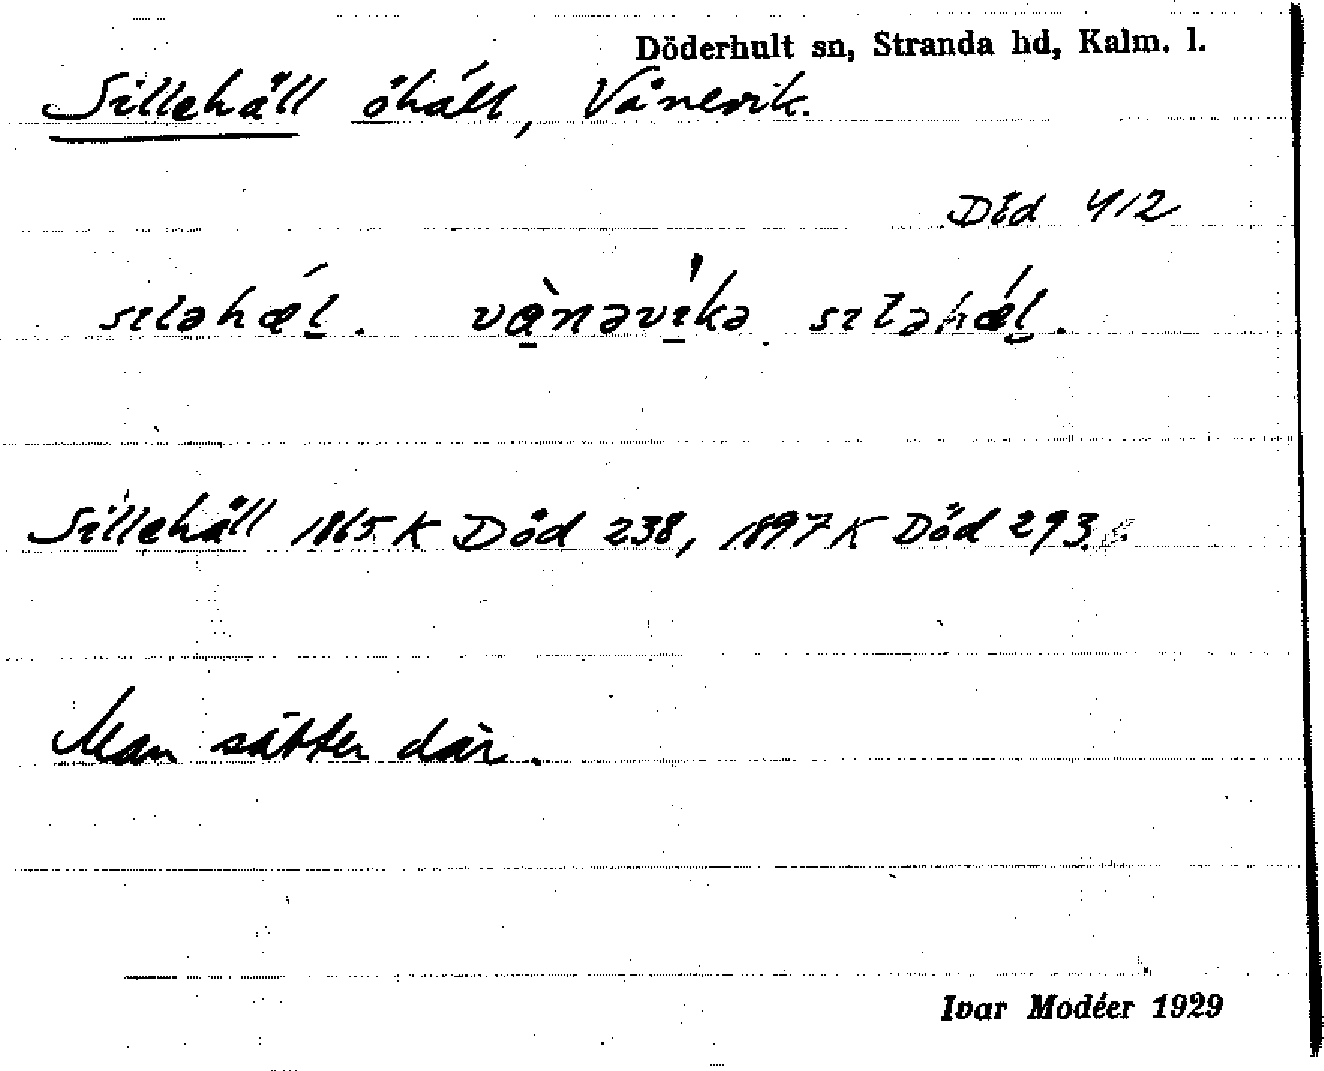 Döderhult sn, Stranda hd, Kalm. l.
Sillehäll öhäll, Vånevik.
Död 412
sɪləhǽl̲. və̲̀nəvɪ̲́kə sɪləhǽl̲.
Sillehäll 1865 K Död 238, 1897 K Död 293
Man sätter där.
Ivar Modéer 1929